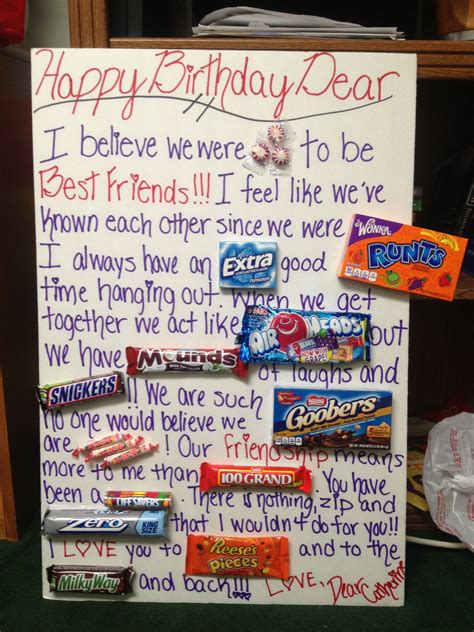 Happy Birthday Dear
I believe we were to be
Best Friends!!! I feel like we've
known each other since we were WONKA RUNTS
I always have an Extra good
time hanging out. When we get
together we act like AIRHEADS but
we have Mounds of laughs and
SNICKERS !! We are such Goobers
no one would believe we
are ! Our Friendship means
more to me than 100 GRAND. You have
been a LIFESAVERS. There is nothing, zip and
Zero KING SIZE that I wouldn't do for you!!
I LOVE you to Reese's PIECES and to the
MilkyWay and back!!! LOVE, Dear Catherine